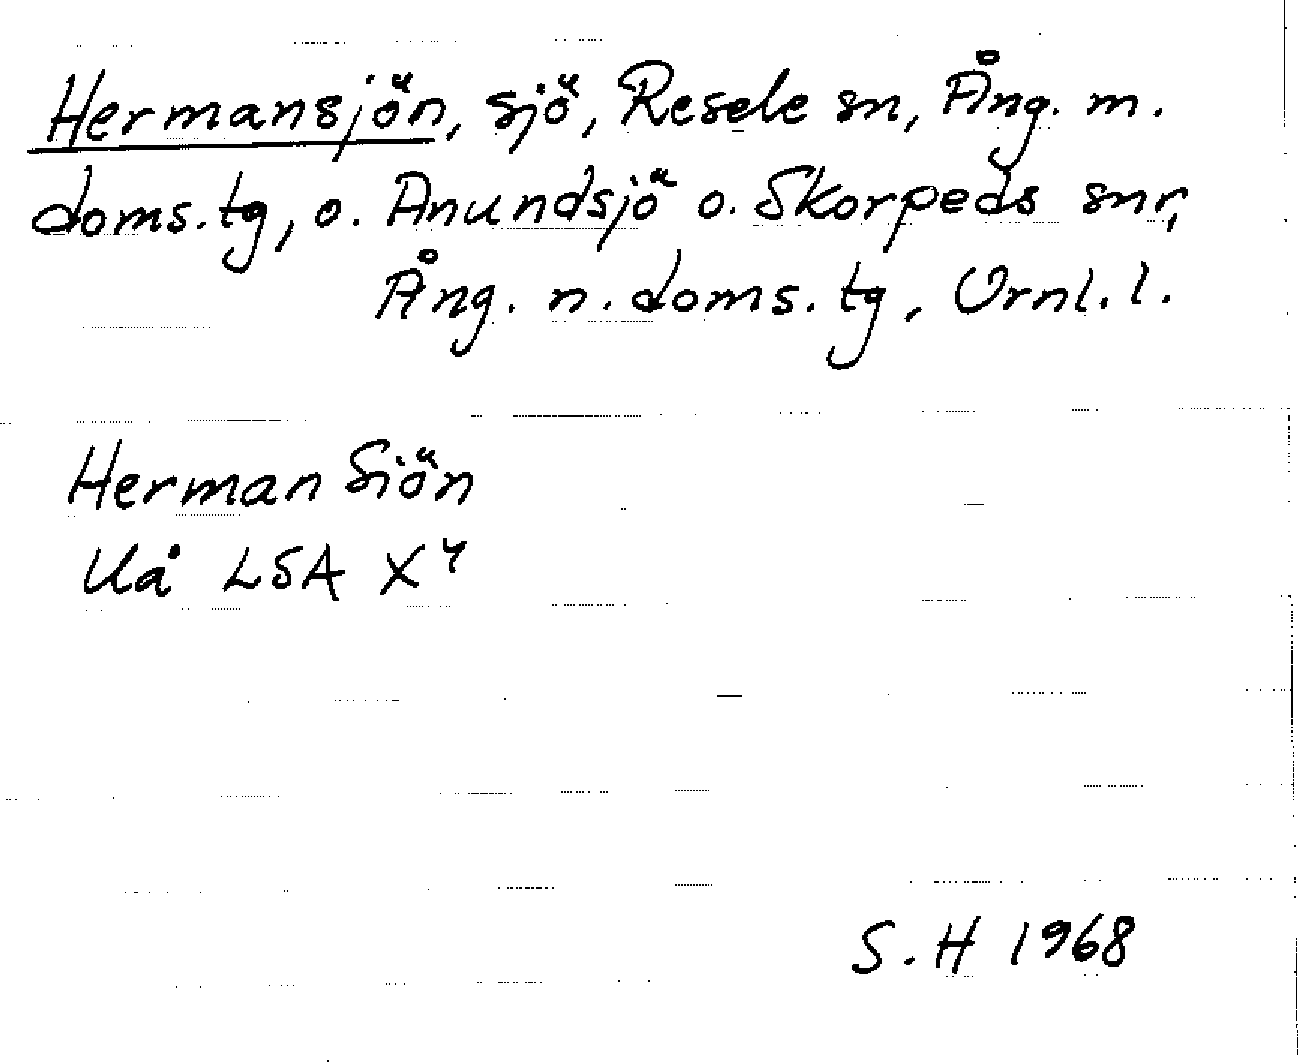 Hermansjön, sjö, Resele sn, Ång. m.
doms.tg, o. Anundsjö o. Skorpeds snr,
Ång. n. doms. tg, Vrnl. l.
Herman Siön
Uå LSA X4
S. H 1968